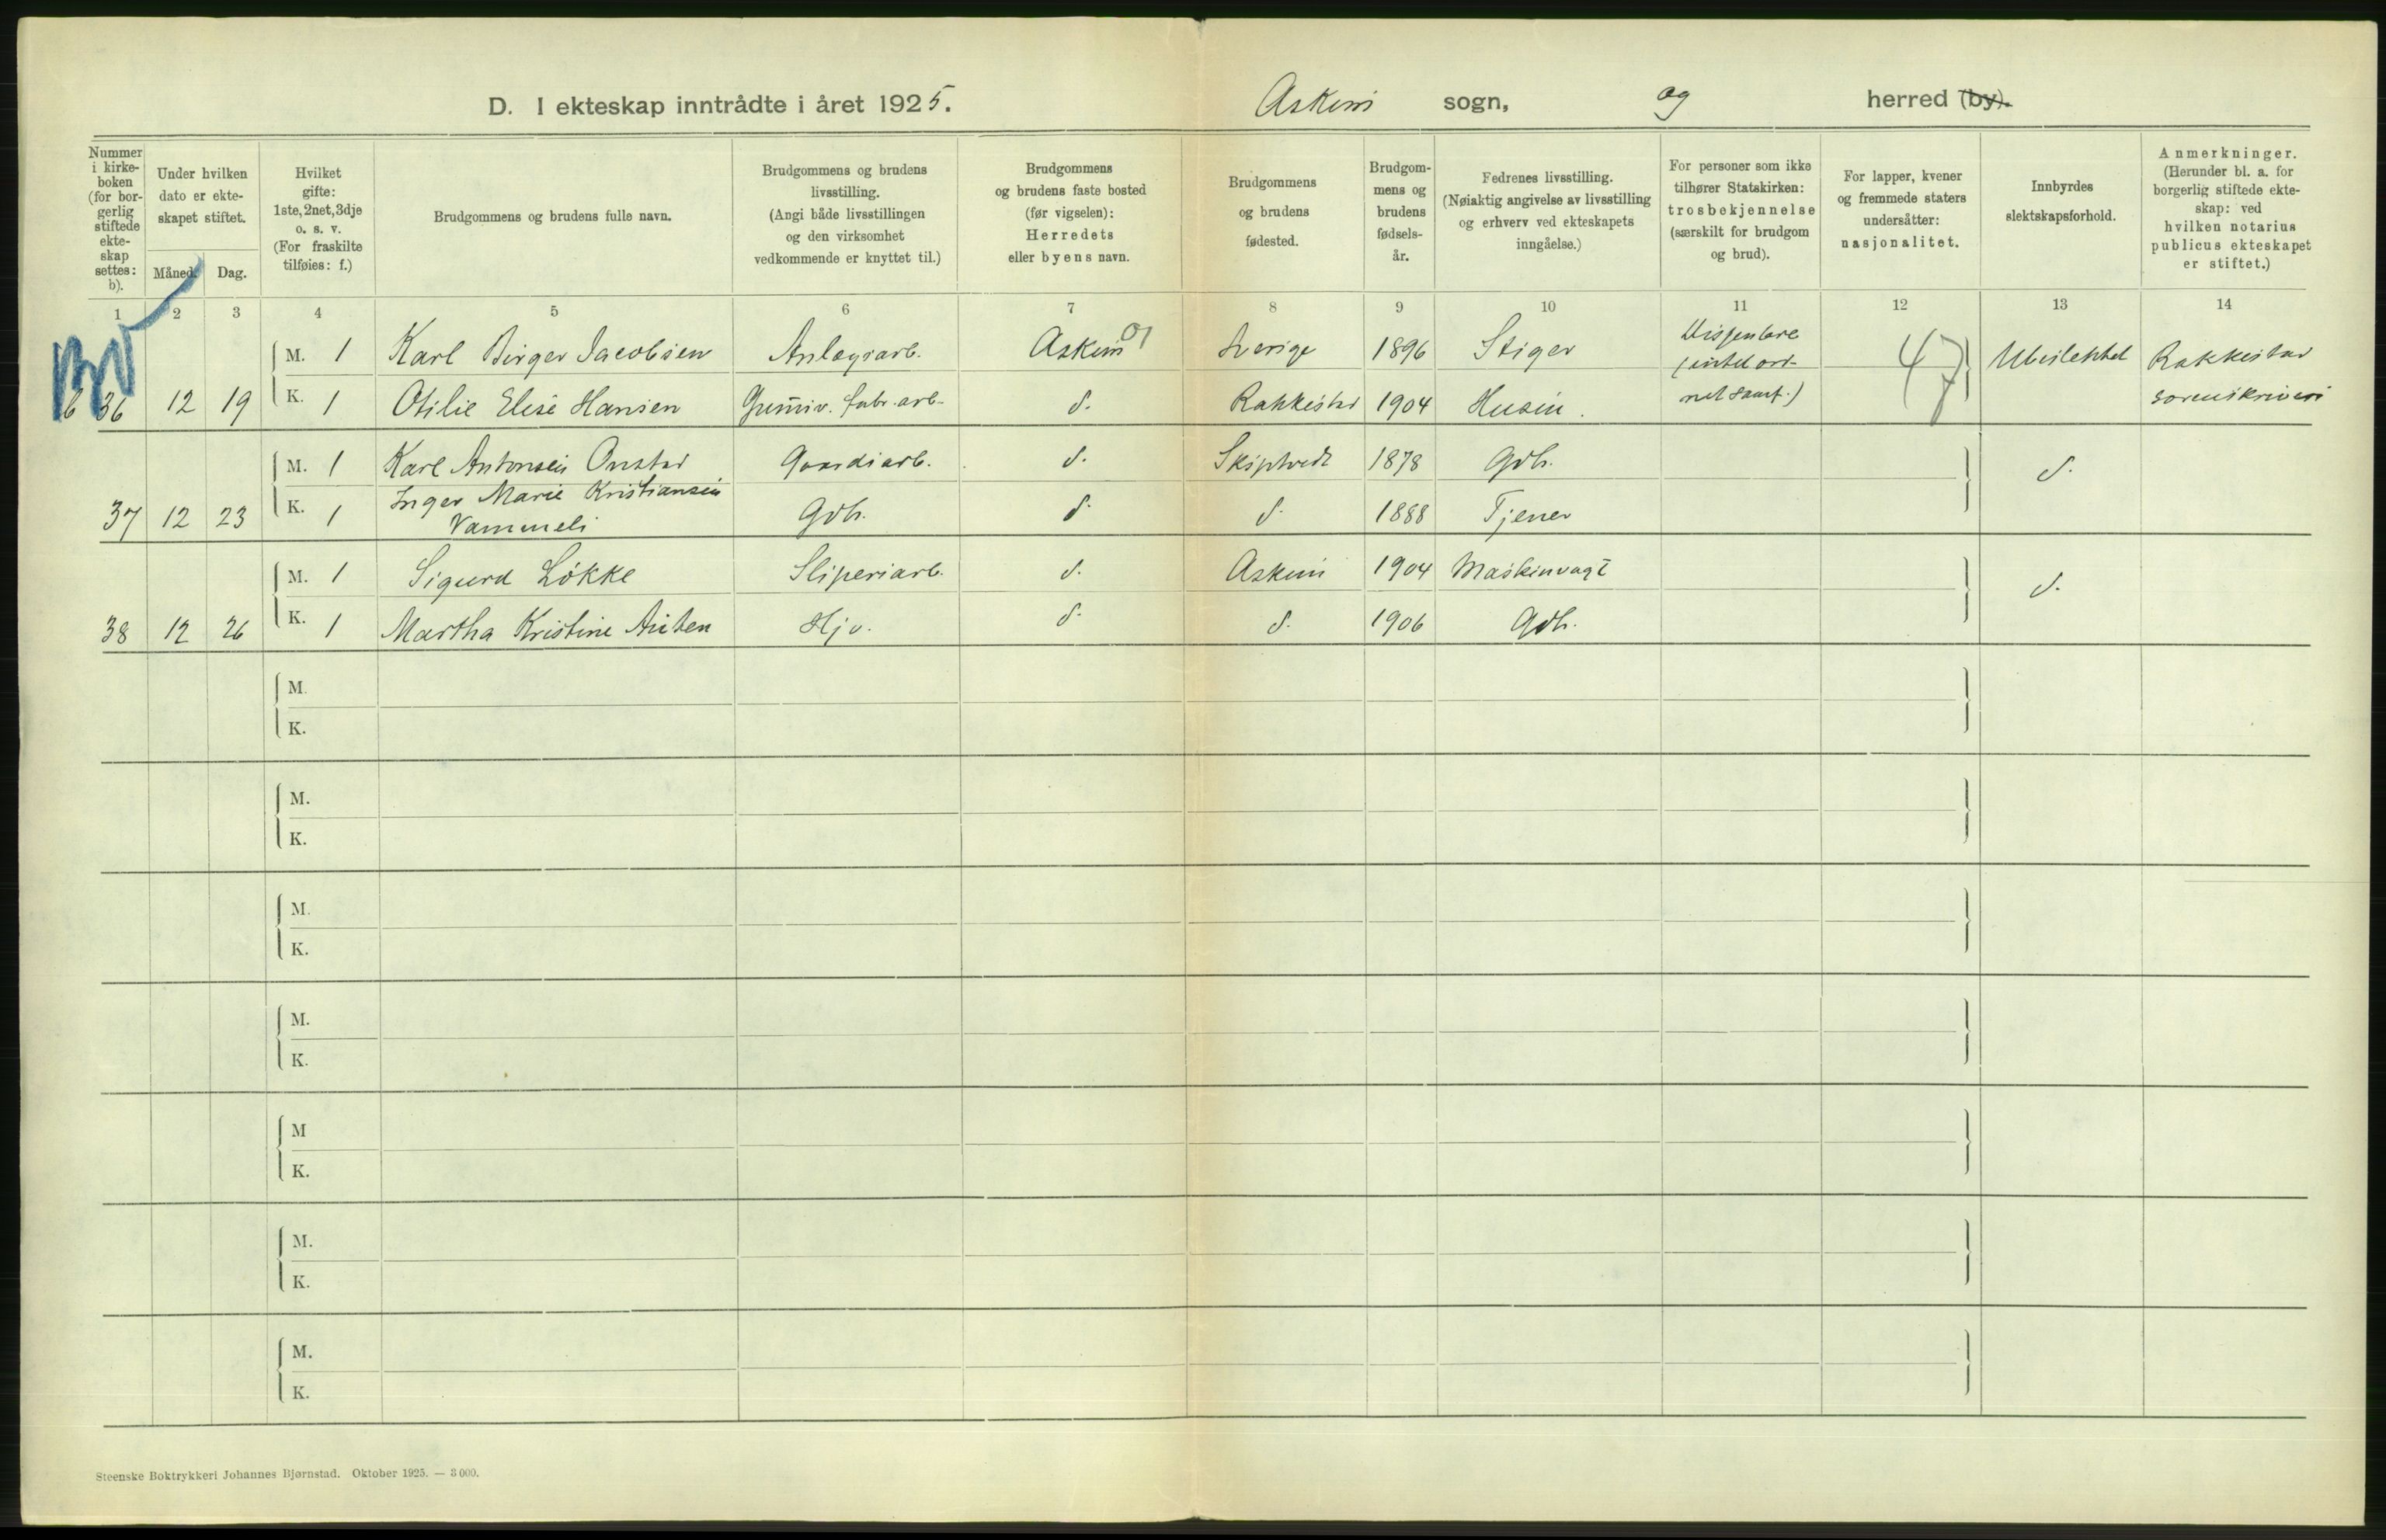 D. I ekteskap inntrådte i året 1925. Askim sogn, og herred (by).
Nummer i kirkeboken (for borgerlig stiftede ekteskap settes: b).
Under hvilken dato er ekteskapet stiftet.
Måned. Dag.
Hvilket gifte: 1ste, 2net, 3dje o. s. v. (For fraskilte tilføies: f.)
Brudgommens og brudens fulle navn.
Brudgommens og brudens livsstilling. (Angi både livsstillingen og den virksomhet vedkommende er knyttet til.)
Brudgommens og brudens faste bosted (før vigselen): Herredets eller byens navn.
Brudgommens og brudens fødested.
Brudgommens og brudens fødselsår.
Fedrenes livsstilling. (Nøiaktig angivelse av livsstilling og erhverv ved ekteskapets inngåelse.)
For personer som ikke tilhører Statskirken: trosbekjennelse (særskilt for brudgom og brud).
For lapper, kvener og fremmede staters undersåtter: nasjonalitet.
Innbyrdes slektskapsforhold.
Anmerkninger. (Herunder bl. a. for borgerlig stiftede ekteskap: ved hvilken notarius publicus ekteskapet er stiftet.)
1 2 3 4 5 6 7 8 9 10 11 12 13 14
M. 1 Karl Birger Jacobsen Anlegsarb. Askim 01 Sverige 1896 Stiger Dissentere (intet ord- 47 Ubeslektet Rakkestad
b 36 12 19 K. 1 Otilie Elise Hansen Gummiv. fabr. arb. d. Rakkestad 1904 Husm. net samf.) sorenskriveri
M. 1 Karl Antonsen Onstad Gaardsarb. d. Skiptvedt 1878 Gdb. d.
37 12 23 K. 1 Inger Marie Kristiansen
Vammeli Gdb. d. d. 1888 Tjener
M. 1 Sigurd Løkke Sliperiarb. d. Askim 1904 Maskinvagt d.
38 12 26 K. 1 Martha Kristine Hjv. d. d. 1906 Gdb.
M.
K.
M.
K.
M.
K.
M.
K.
M
K.
M.
K.
M.
K.
Steenske Boktrykkeri Johannes Bjørnstad. Oktober 1925. — 3000.